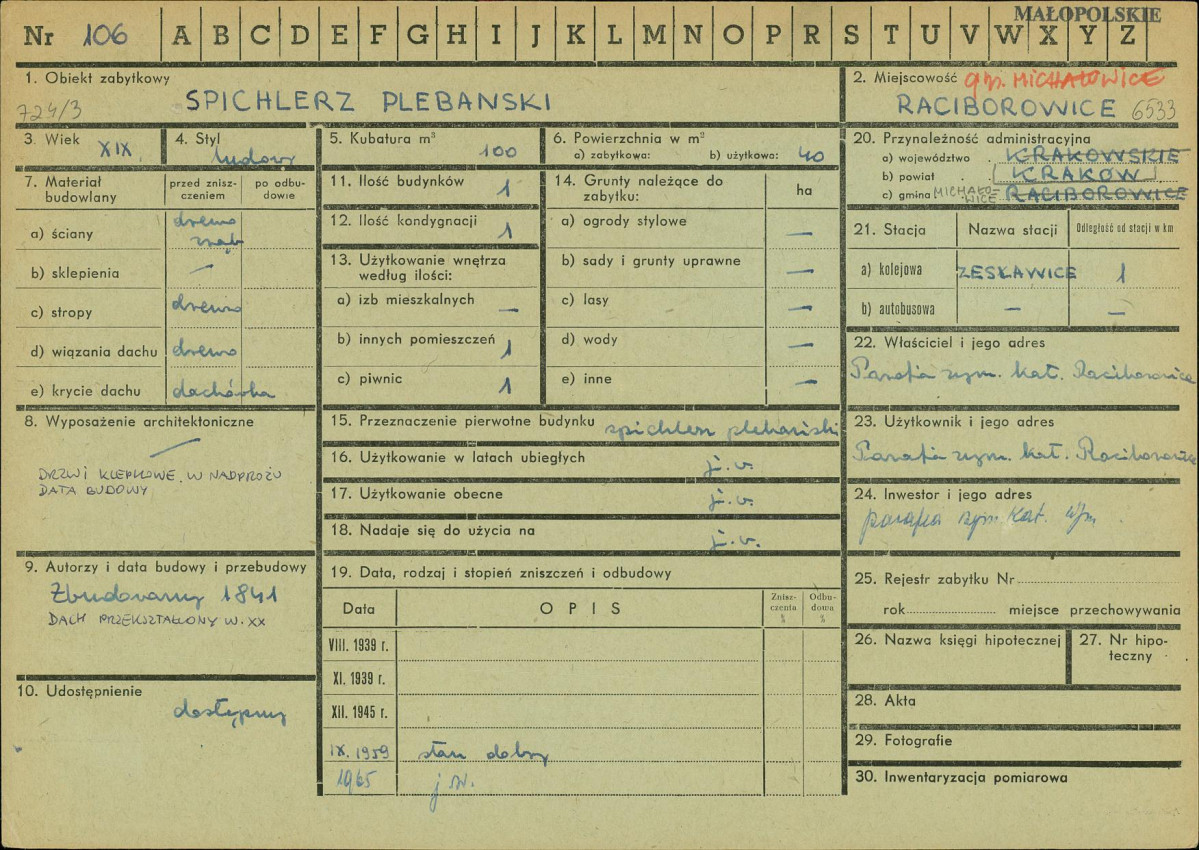 MAŁOPOLSKIE
Nr 106 A B C D E F G H I J K L M N O P R S T U V W X Y Z
1. Obiekt zabytkowy
724/3 SPICHLERZ PLEBANSKI
2. Miejscowość gm. MICHAŁOWICE
RACIBOROWICE 6533
3. Wiek XIX.
4. Styl ludowy
5. Kubatura m³ 100
6. Powierzchnia w m²
a) zabytkowa: b) użytkowa: 40
20. Przynależność administracyjna
a) województwo . KRAKOWSKIE
b) powiat . KRAKÓW
c) gmina MICHAŁO-WICE RACIBOROWICE
7. Materiał budowlany
przed zniszczeniem
po odbudowie
a) ściany drewno zrąb
b) sklepienia —
c) stropy drewno
d) wiązania dachu drewno
e) krycie dachu dachówka
11. Ilość budynków 1
12. Ilość kondygnacji 1
13. Użytkowanie wnętrza
według ilości:
a) izb mieszkalnych —
b) innych pomieszczeń 1
c) piwnic 1
14. Grunty należące do
zabytku: ha
a) ogrody stylowe —
b) sady i grunty uprawne —
c) lasy —
d) wody —
e) inne —
21. Stacja Nazwa stacji Odległość od stacji w km
a) kolejowa ZESŁAWICE 1
b) autobusowa — —
22. Właściciel i jego adres
Parafia rzym. kat. Raciborowice
8. Wyposażenie architektoniczne
—
DRZWI KLEPKOWE, W NADPROŻU
DATA BUDOWY
15. Przeznaczenie pierwotne budynku spichlerz plebański
16. Użytkowanie w latach ubiegłych j.w.
17. Użytkowanie obecne j.w.
18. Nadaje się do użycia na j.w.
23. Użytkownik i jego adres
Parafia rzym. kat. Raciborowice
24. Inwestor i jego adres
parafia rzym. kat.
9. Autorzy i data budowy i przebudowy
Zbudowany 1841
DACH PRZEKSZTAŁCONY W. XX
10. Udostępnienie
dostępny
19. Data, rodzaj i stopień zniszczeń i odbudowy
Data OPIS Zniszczenia % Odbudowa %
VIII. 1939 r.
XI. 1939 r.
XII. 1945 r.
IX. 1959 stan dobry
1965 j.w.
25. Rejestr zabytku Nr
rok miejsce przechowywania
26. Nazwa księgi hipotecznej
27. Nr hipoteczny
28. Akta
29. Fotografie
30. Inwentaryzacja pomiarowa